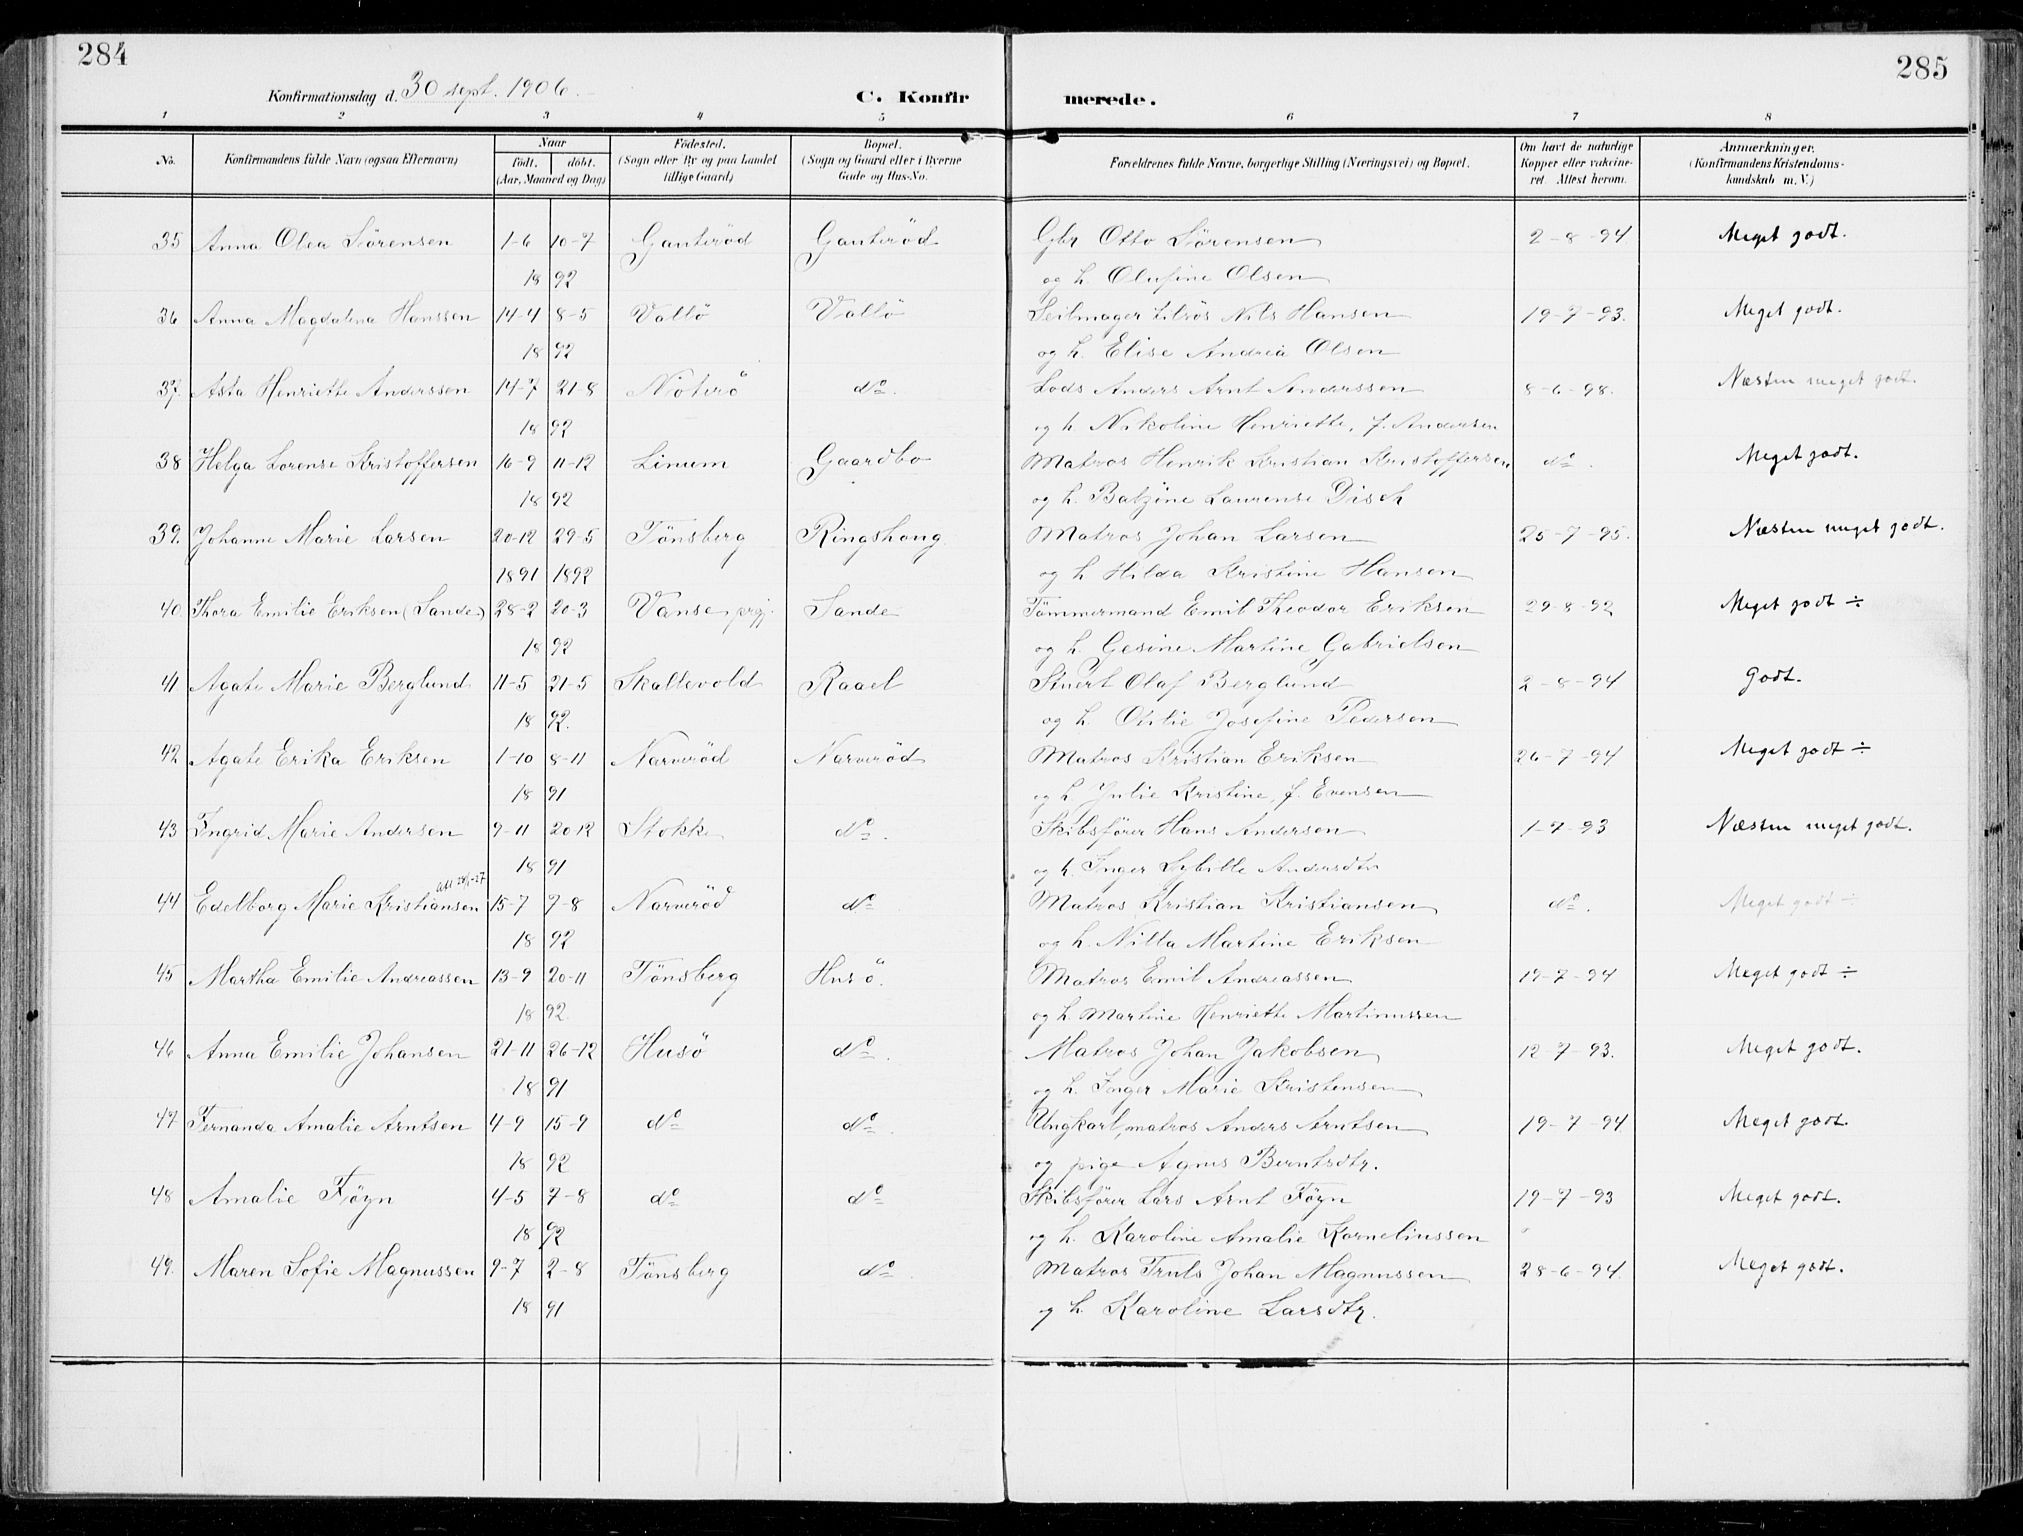 284
285
Konfirmationsdag d. 30 sept. 1906.
C. Konfirmerede.
1 2 3 4 5 6 7 8
No. Konfirmandens fulde Navn (ogsaa Efternavn) Naar født. døbt. (Aar, Maaned og Dag) Fødested. (Sogn eller By og paa Landet tillige Gaard) Bopæl. (Sogn og Gaard eller i Byerne Gade og Hus-No. Forældrenes fulde Navne, borgerlige Stilling (Næringsvei) og Bopæl. Om havt de naturlige Kopper eller vakcineret. Attest herom. Anmærkninger. (Konfirmandens Kristendomskundskab m. V.)
35 Anna Olea Sörensen 1-6 10-7 Gauteröd Gauteröd Gbr Otto Sörensen 2-8-94 Meget godt.
18 92 og h. Olufine Olsen
36 Anna Magdalena Hanssen 14-4 8-5 Vallö Vallö Seilmager Nils Hansen 19-7-93. Meget godt.
18 92 og h. Elise Andrea Olsen
37. Asta Henriette Anderssen 14-7 21-8 Nöterö do. Lods Anders Arnt Anderssen 8-6-98. Næsten meget godt.
18 92 og h. Nikoline Henriette, f. Andersen
38 Helga Lorense Kristoffersen 16-9 11-12 Linum Gaardbo Matros Henrik Kristian Kristoffersen do Meget godt.
18 92 og h. Batzine Laurense Disch
39. Johanne Marie Larsen 20-12 29-5 Tönsberg Ringshoug Matros Johan Larsen 25-7-95. Næsten meget godt.
1891 1892 og h Hilda Kristine Hansen
40. Thora Emilie Eriksen (Sande) 28-2 20-3 Vanse prgj. Sande Tömmermand Emil Theodor Eriksen 29-8-92 Meget godt ÷
18 92 og h. Gesine Martine Gabrielsen
41 Agate Marie Berglund 11-5 21-5 Skallevold Raael Stuert Olaf Berglund 2-8-94 Godt.
18 92. og h. Otilie Josefine Pedersen
42 Agate Erika Eriksen 1-10 8-11 Narveröd Narveröd Matros Kristian Eriksen 26-7-94 Meget godt ÷
18 91 og h. Julie Kristine, f. Evensen
43 Ingrid Marie Andersen 9-11 20-12 Stokke do. Skibsfører Hans Andersen 1-7-93 Næsten meget godt.
18 91 og h. Inger Sybille Andersdtr
att 28/1-27
44 Edelborg Marie Kristiansen 15-7 7-8 Narveröd do Matros Kristian Kristiansen do. Meget godt ÷
18 92 og h. Nilla Martine Eriksen
45 Martha Emilie Andreassen 13-9 20-11 Tönsberg Husö. Matros Emil Andreassen 17-7-94 Meget godt ÷
18 92. og h Martine Henriette Martinussen
46 Anna Emilie Johansen 21-11 26-12 Husö do. Matros Johan Jakobsen 12-7-93. Meget godt.
18 91 og h. Inger Marie Kristensen
47. Fernanda Amalie Arntsen 4-9 15-9 do do. Ungkarl, matros Anders Arntsen 19-7-94 Meget godt.
18 92 og pige Agnes Berntsdtr.
48 Amalie Föyn 4-5 7-8 do do Skibsfører Lars Arnt Föyn 19-7-93 Meget godt.
18 92 og h. Karoline Amalie Korneliussen
49. Maren Sofie Magnussen 9-7 2-8 Tönsberg do Matros Truls Johan Magnussen 28-6-94. Meget godt.
18 91 og h. Karoline Larsdtr.